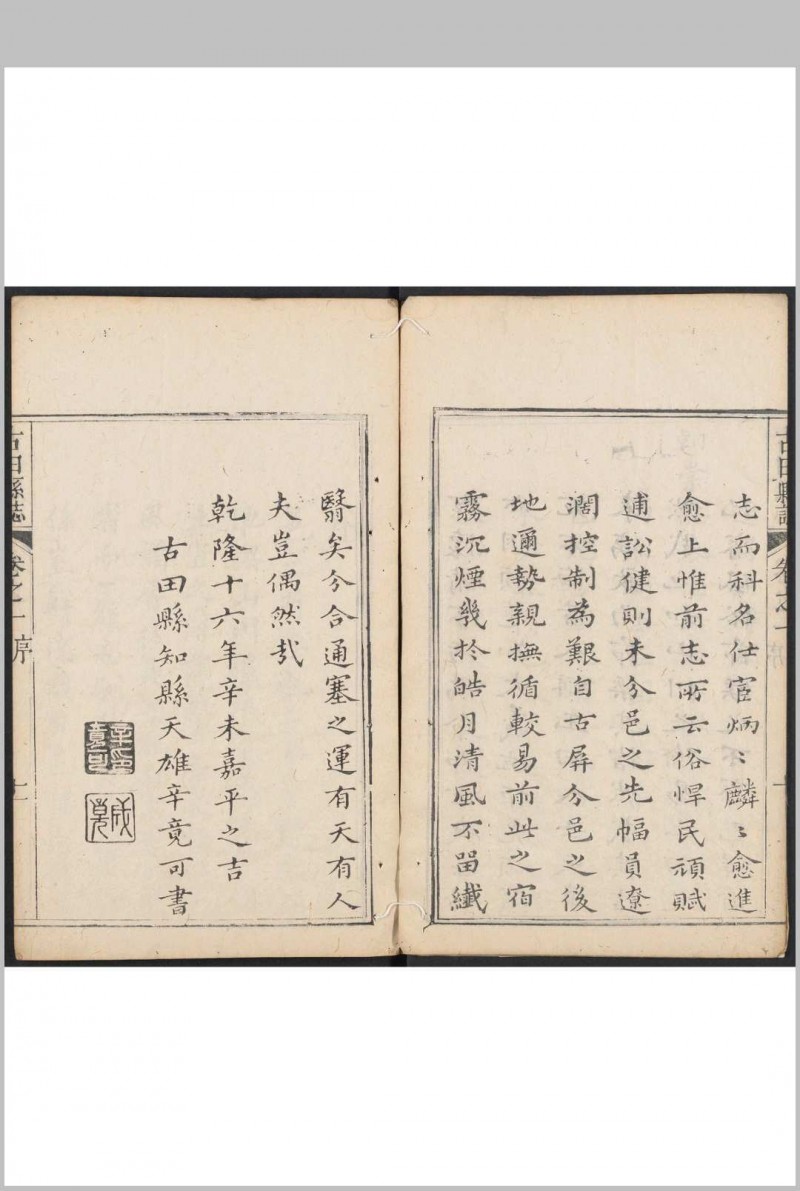 古田縣誌
卷之一
序
志而科名仕宦炳〻麟〻愈進
愈上惟前志所云俗悍民頑賦
逋訟健則未分邑之先幅員遼
濶控制為艱自古屏分邑之後
地邇勢親撫循較易前此之宿
霧沉煙幾於皓月清風不留纖
翳矣分合通塞之運有天有人
夫豈偶然哉
乾隆十六年辛未嘉平之吉
古田縣知縣天雄辛竟可書
古田縣誌
卷之一
序